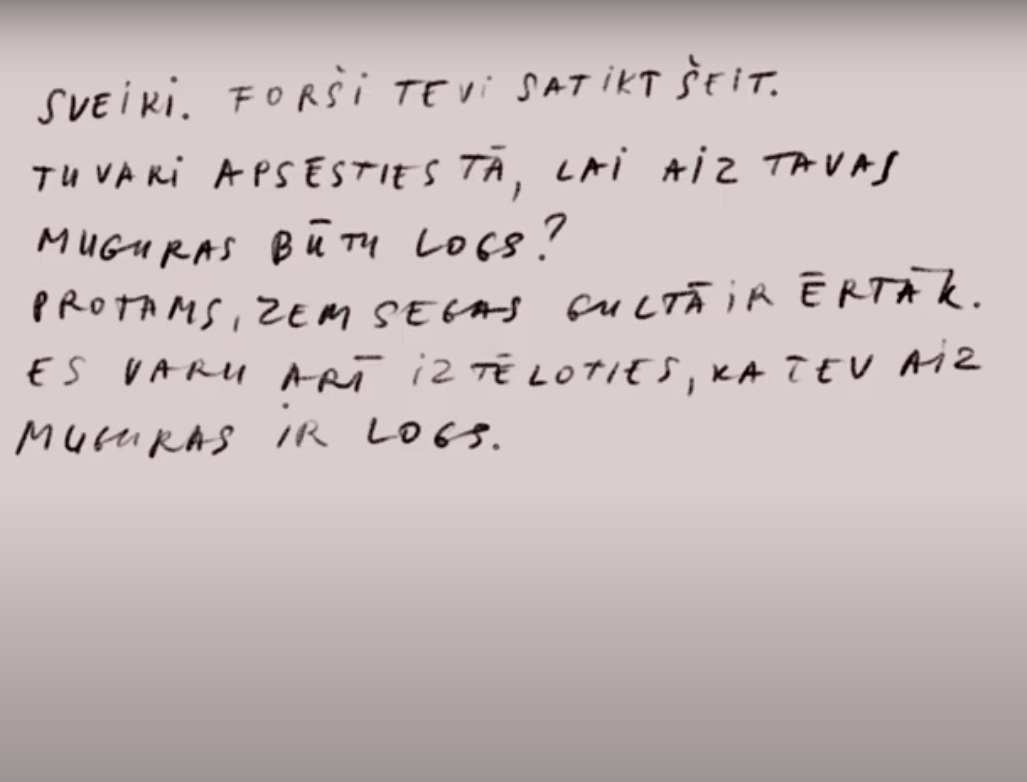 SVEIKI. FORŠI TEVI SATIKT ŠEIT.
TU VARI APSĒSTIES TĀ, LAI AIZ TAVAS
MUGURAS BŪTU LOGS?
PROTAMS, ZEM SEGAS GULTĀ IR ĒRTĀK.
ES VARU ARĪ IZTĒLOTIES, KA TEV AIZ
MUGURAS IR LOGS.